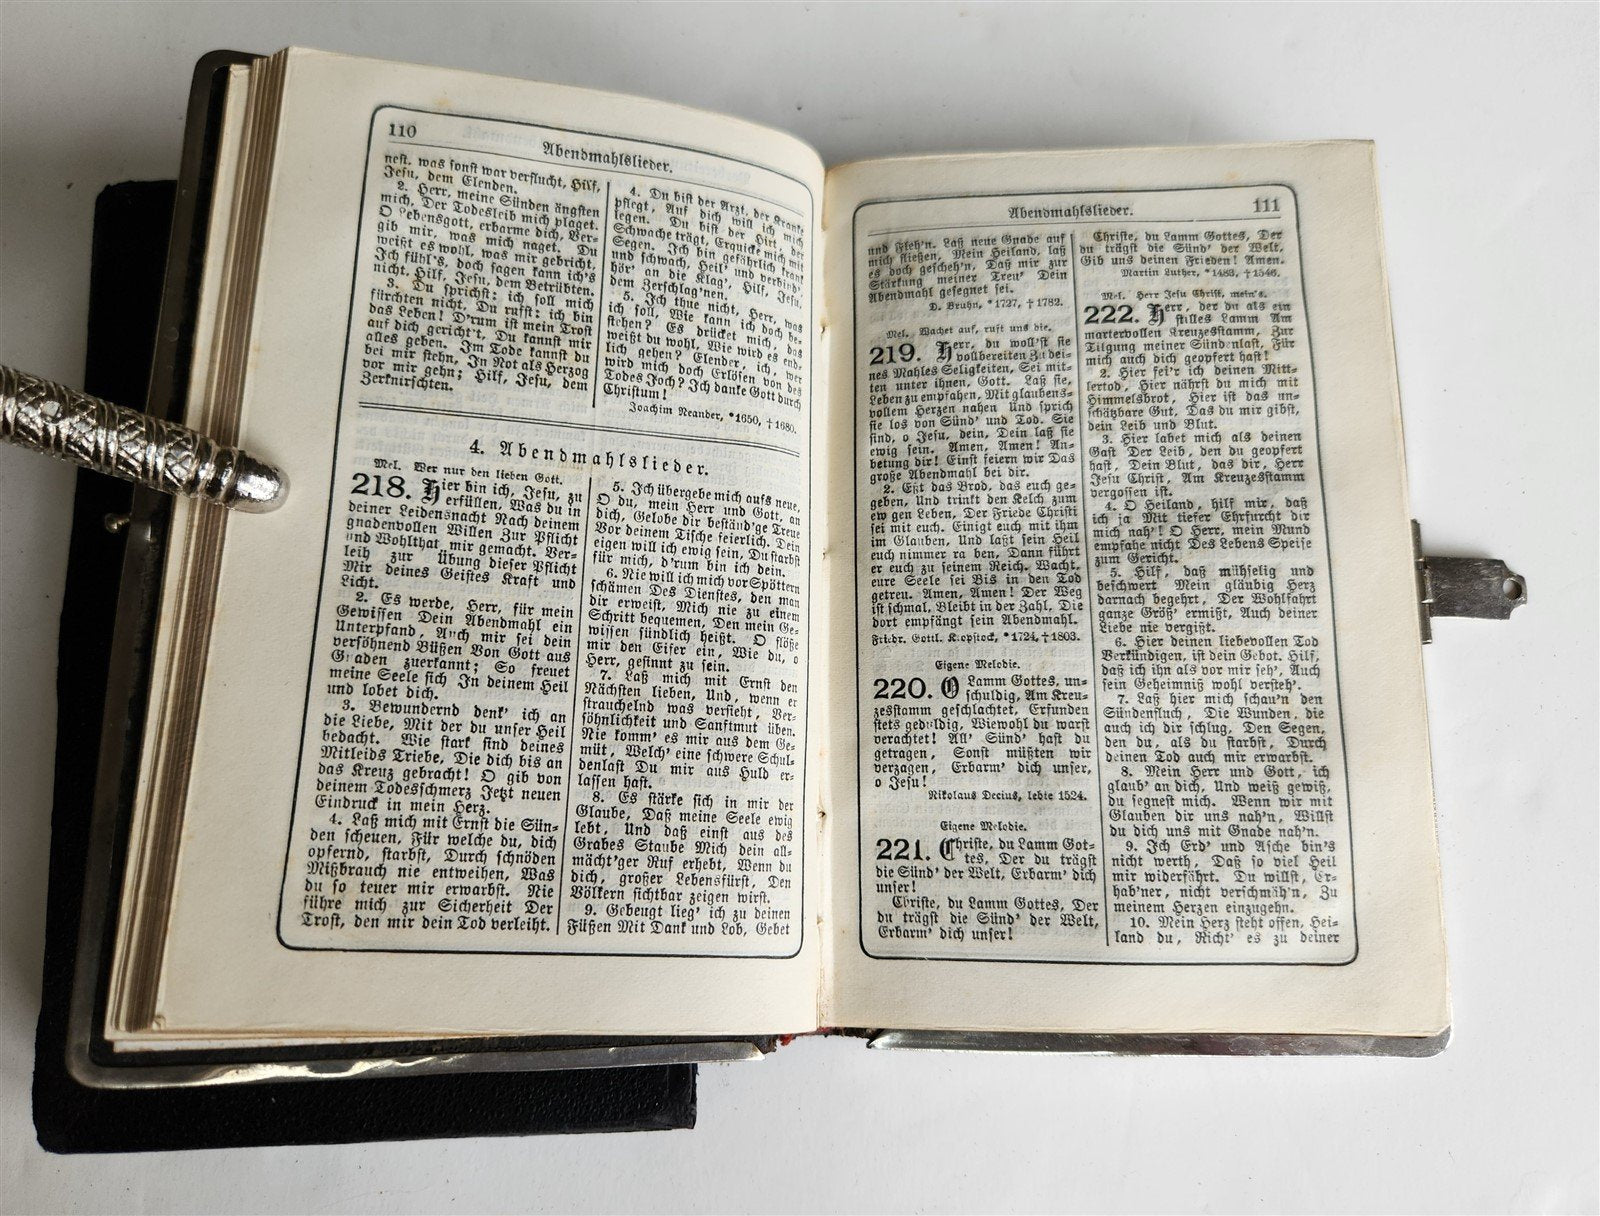 110
Abendmahlslieder.
nest, was sonst war verflucht, Hilf,
Jesu, dem Elenden.
2. Herr, meine Sünden ängsten
mich, Der Todesleib mich plaget.
O Lebensgott, erbarme dich, Ver-
gib mir, was mich naget. Du
weißt es wohl, was mir gebricht,
Ich fühl's, doch sagen kann ich's
nicht. Hilf, Jesu, dem Betrübten.
3. Du sprichst: ich soll mich
fürchten nicht. Du rufst: ich bin
das Leben! D'rum ist mein Trost
auf dich gericht't, Du kannst mir
alles geben. Im Tode kannst du
bei mir stehn, In Not als Herzog
vor mir gehn; Hilf, Jesu, dem
Zerknirschten.
4. Du bist der Arzt, der Kranke
pflegt, Auf dich will ich mich
legen. Du bist der Hirt, der
Schwache trägt, Erquicke mich mit
Segen. Ich bin gefährlich krank
und schwach, Heil' und verbind'
hör' an die Klag', Hilf, Jesu,
dem Zerschlag'nen.
5. Ich thue nicht, Herr, was
ich soll, Wie kann ich doch be-
stehen? Es drücket mich, das
weißt du wohl, Wie wird es end-
lich gehen? Elender, ich, wer
wird mich doch Erlösen von des
Todes Joch? Ich danke Gott durch
Christum!
Joachim Neander, *1650, †1680.
4. Abendmahlslieder.
Mel. Wer nur den lieben Gott.
218. Hier bin ich, Jesu, zu
erfüllen, Was du in
deiner Leidensnacht Nach deinem
gnadenvollen Willen Zur Pflicht
und Wohlthat mir gemacht. Ver-
leih zur Übung dieser Pflicht
Mir deines Geistes Kraft und
Licht.
2. Es werde, Herr, für mein
Gewissen Dein Abendmahl ein
Unterpfand, Auch mir sei dein
versöhnend Büßen Von Gott aus
Gnaden zuerkannt; So freuet
meine Seele sich In deinem Heil
und lobet dich.
3. Bewundernd denk' ich an
die Liebe, Mit der du unser Heil
bedacht. Wie stark sind deines
Mitleids Triebe, Die dich bis an
das Kreuz gebracht! O gib von
deinem Todesschmerz Jetzt neuen
Eindruck in mein Herz.
4. Laß mich mit Ernst die Sün-
den scheuen, Für welche du, dich
opfernd, starbst, Durch schnöden
Mißbrauch nie entweihen, Was
du so teuer mir erwarbst. Nie
führe mich zur Sicherheit Der
Trost, den mir dein Tod verleiht.
5. Ich übergebe mich aufs neue,
O du, mein Herr und Gott, an
dich, Gelobe dir beständ'ge Treue
Vor deinem Tische feierlich. Dein
eigen will ich ewig sein, Du starbst
für mich, d'rum bin ich dein.
6. Nie will ich mich vor Spöttern
schämen Des Dienstes, den man
dir erweist, Mich nie zu einem
Schritt bequemen, Den mein Ge-
wissen sündlich heißt. O flöße
mir den Eifer ein, Wie du, o
Herr, gesinnt zu sein.
7. Laß mich mit Ernst den
Nächsten lieben, Und, wenn er
strauchelnd was versieht, Ver-
söhnlichkeit und Sanftmut üben.
Nie komm' es mir aus dem Ge-
müt, Welch' eine schwere Schul-
denlast Du mir aus Huld er-
lassen hast.
8. Es stärke sich in mir der
Glaube, Daß meine Seele ewig
lebt, Und daß einst aus des
Grabes Staube Mich dein all-
mächt'ger Ruf erhebt, Wenn du
dich, großer Lebensfürst, Den
Völkern sichtbar zeigen wirst.
9. Gebeugt lieg' ich zu deinen
Füßen Mit Dank und Lob, Gebet
Abendmahlslieder.
111
und Fleh'n. Laß neue Gnade auf
mich fließen, Mein Heiland, laß
es doch gescheh'n, Daß mir zur
Stärkung meiner Treu' Dein
Abendmahl gesegnet sei.
D. Bruhn, *1727, †1782.
Mel. Wachet auf, ruft uns die.
219. Herr, du woll'st sie
vollbereiten Zu dei-
nes Mahles Seligkeiten, Sei mit-
ten unter ihnen, Gott. Laß sie,
Leben zu empfahen, Mit glaubens-
vollem Herzen nahen Und sprich
sie los von Sünd' und Tod. Sie
sind, o Jesu, dein, Dein laß sie
ewig sein. Amen, Amen! An-
betung dir! Einst feiern wir Das
große Abendmahl bei dir.
2. Eßt das Brod, das euch ge-
geben, Und trinkt den Kelch zum
ew gen Leben, Der Friede Christi
sei mit euch. Einigt euch mit ihm
im Glauben, Und laßt sein Heil
euch nimmer ra ben, Dann führt
er euch zu seinem Reich. Wacht,
eure Seele sei Bis in den Tod
getreu. Amen, Amen! Der Weg
ist schmal, Bleibt in der Zahl, Die
dort empfängt sein Abendmahl.
Friedr. Gottl. Klopstock, *1724, †1803.
Eigene Melodie.
220. O Lamm Gottes, un-
schuldig, Am Kreu-
zesstamm geschlachtet, Erfunden
stets geduldig, Wiewohl du warst
verachtet! All' Sünd' hast du
getragen, Sonst müßten wir
verzagen, Erbarm' dich unser,
o Jesu!
Nikolaus Decius, lebte 1524.
Eigene Melodie.
221. Christe, du Lamm Got-
tes, Der du trägst
die Sünd' der Welt, Erbarm' dich
unser!
Christe, du Lamm Gottes, Der
du trägst die Sünd' der Welt,
Erbarm' dich unser!
Christe, du Lamm Gottes, Der
du trägst die Sünd' der Welt,
Gib uns deinen Frieden! Amen.
Martin Luther, *1483, †1546.
Mel. Herr Jesu Christ, mein's.
222. Herr, der du als ein
stilles Lamm Am
martervollen Kreuzesstamm, Zur
Tilgung meiner Sündenlast, Für
mich auch dich geopfert hast!
2. Hier fei'r ich deinen Mitt-
lertod, Hier nährst du mich mit
Himmelsbrot, Hier ist das un-
schätzbare Gut, Das du mir gibst,
dein Leib und Blut.
3. Hier labet mich als deinen
Gast Der Leib, den du geopfert
hast, Dein Blut, das dir, Herr
Jesu Christ, Am Kreuzesstamm
vergossen ist.
4. O Heiland, hilf mir, daß
ich ja Mit tiefer Ehrfurcht dir
mich nah'! O Herr, mein Mund
empfahe nicht Des Lebens Speise
zum Gericht.
5. Hilf, daß mühselig und
beschwert Mein gläubig Herz
darnach begehrt, Der Wohlfahrt
ganze Größ' ermißt, Auch deiner
Liebe nie vergißt.
6. Hier deinen liebevollen Tod
Verkündigen, ist dein Gebot. Hilf,
daß ich ihn als vor mir seh', Auch
sein Geheimniß wohl versteh'.
7. Laß hier mich schau'n den
Sündenfluch, Die Wunden, die
auch ich dir schlug, Den Segen,
den du, als du starbst, Durch
deinen Tod auch mir erwarbst.
8. Mein Herr und Gott, ich
glaub' an dich, Und weiß gewiß,
du segnest mich. Wenn wir mit
Glauben dir uns nah'n, Willst
du dich uns mit Gnade nah'n.
9. Ich Erd' und Asche bin's
nicht werth, Daß so viel Heil
mir widerfährt. Du willst, Er-
hab'ner, nicht verschmäh'n, Zu
meinem Herzen einzugehn.
10. Mein Herz steht offen, Hei-
land du, Richt' es zu deiner